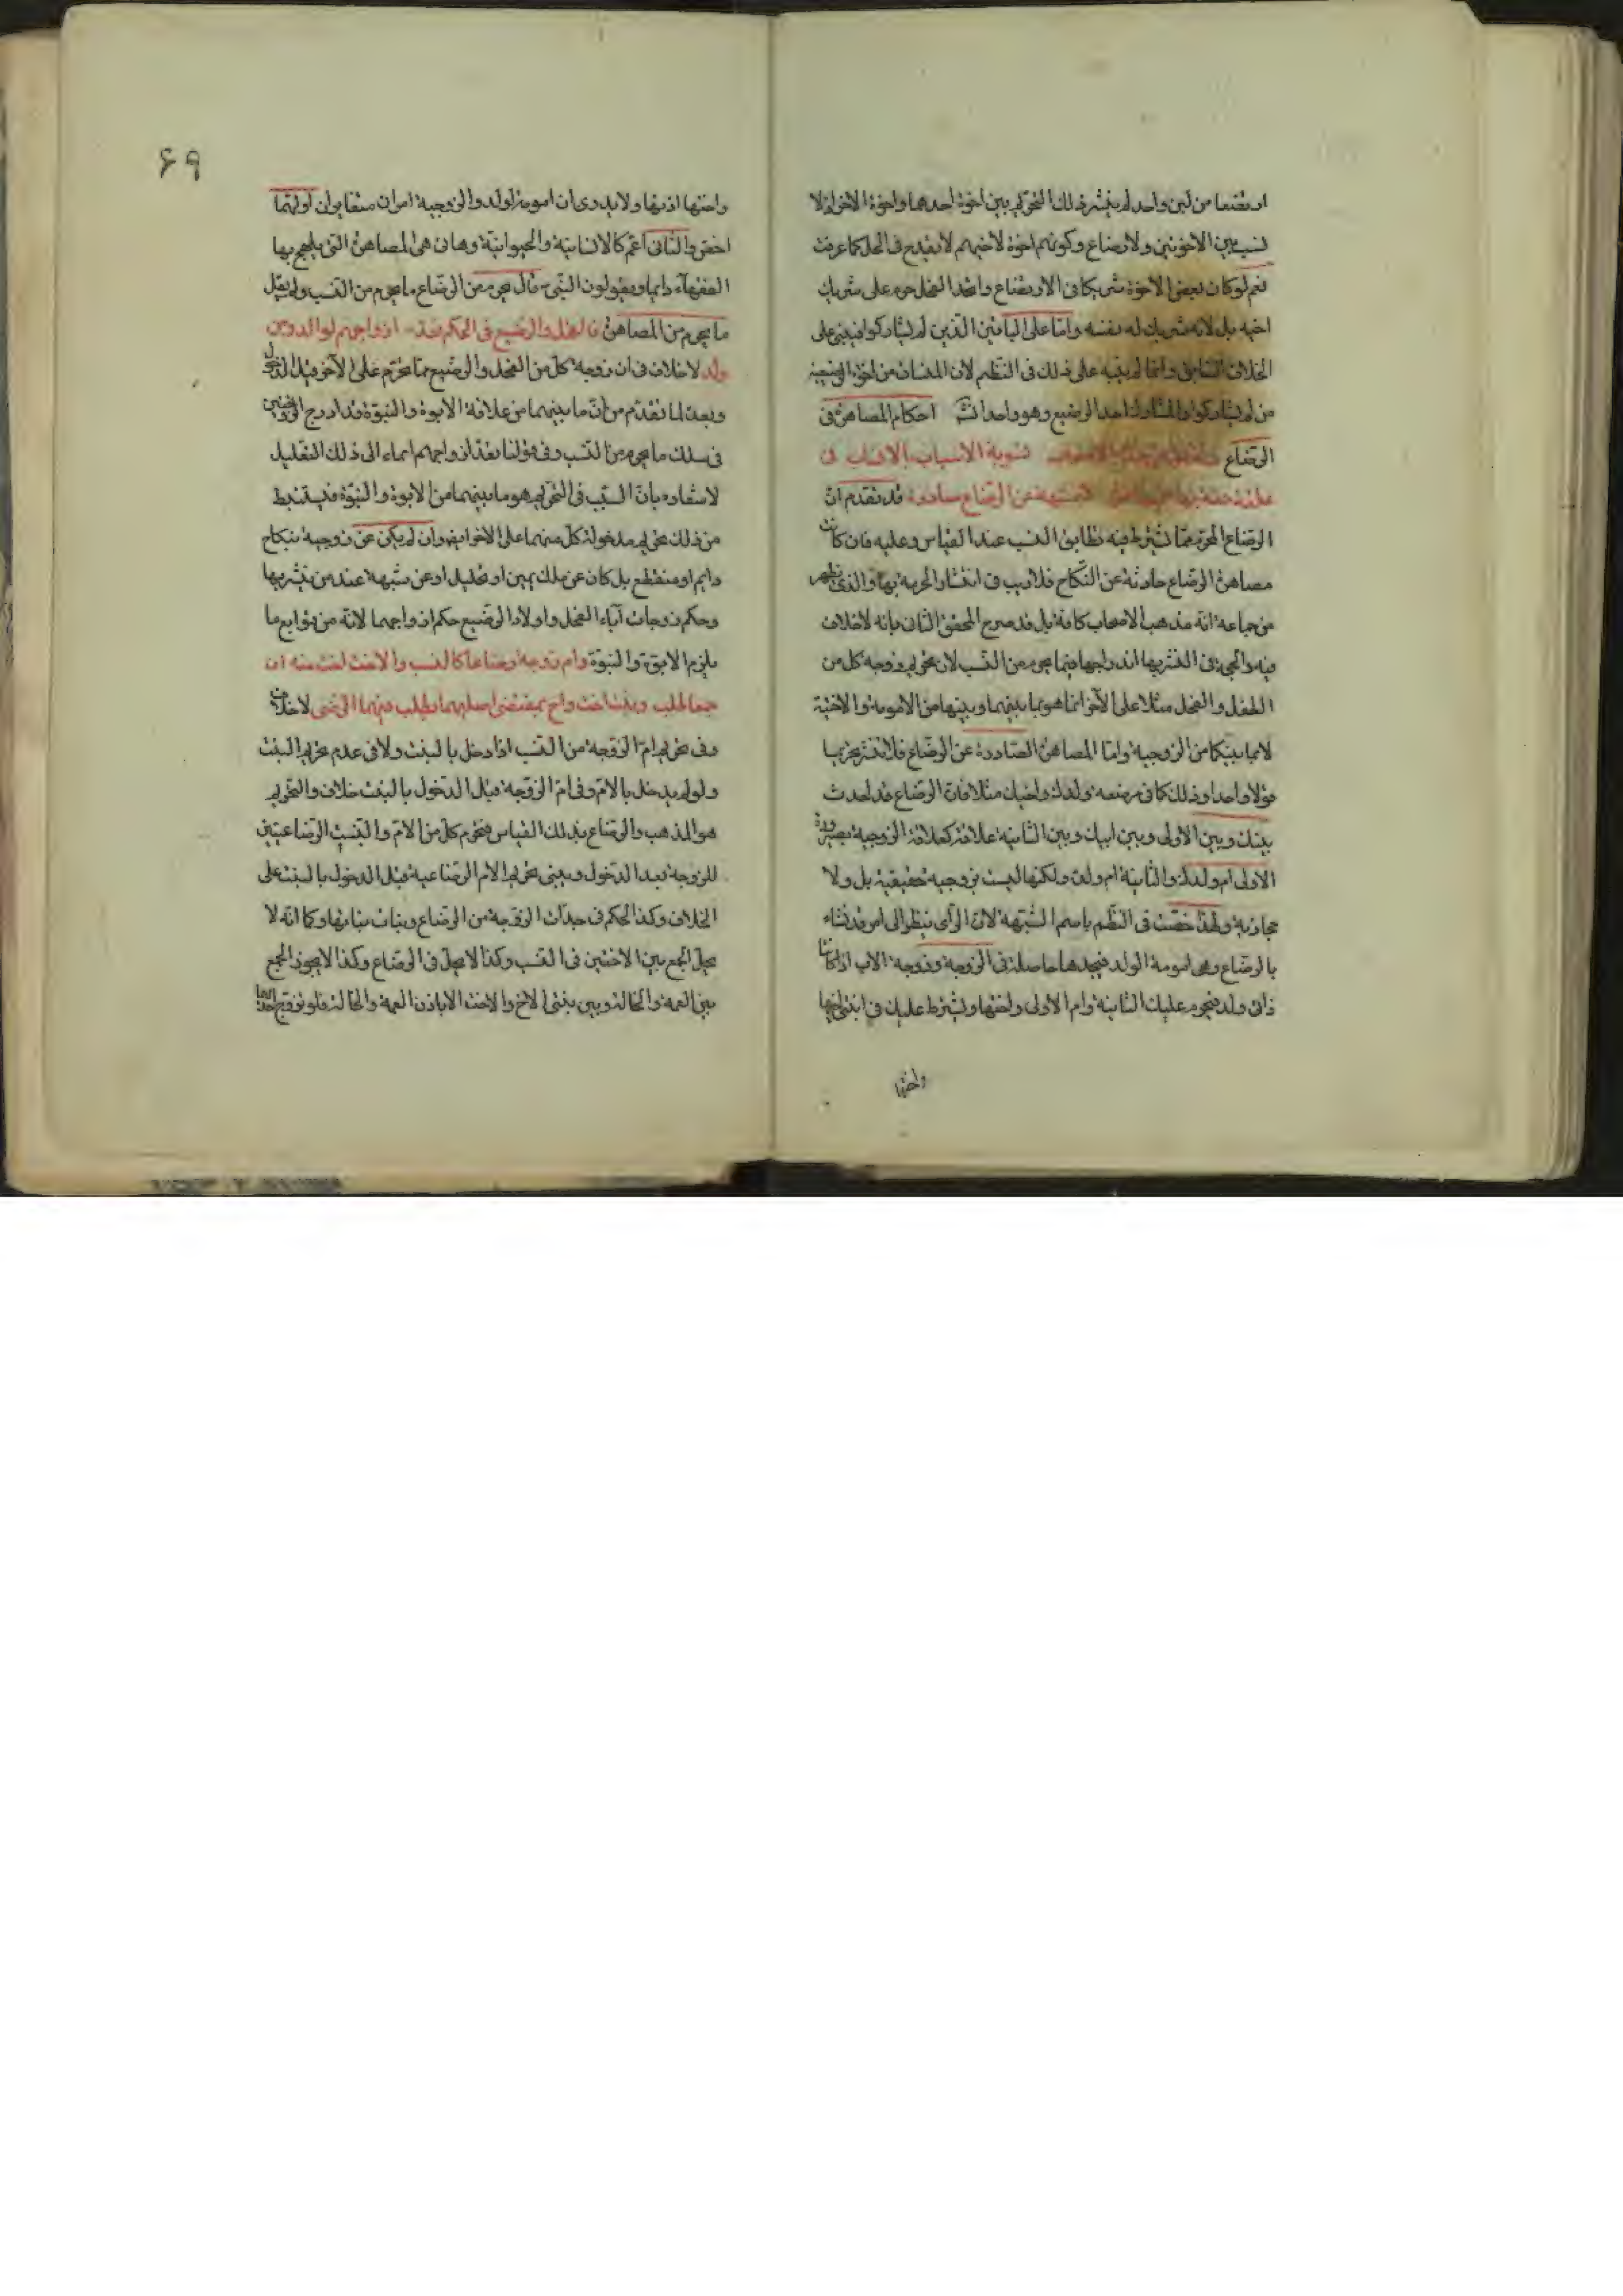 ارتضعا من لبن واحد لم ينتشر ذلك التحريم بين اخوة احدهما واخوة الاخر اذ لا
نسب بين الاخوتين ولا رضاع وكونهم اخوة لاخيهم لا يقدح فى الحل كما عرفت
نعم لو كان بعض الاخوة شريكا فى الارتضاع واتحد الفحل حرم على شريك
اخيه بل لانه شريك له بنفسه واما على الباقين الذين لم يشاركوا فيبنى على
الخلاف السابق وانما لم ينبه على ذلك فى النظم لان
من لم يشاركوا احد الرضيع وهو واحد احكام المصاهرة فى
الرضاع تسوية الانساب بالاسباب فى
عن الرضاع صادرة قد تقدم ان
الرضاع المحرم مما يشترط فيه تطابق النسب عند القياس وعليه فان كانت
مصاهرة الرضاع حادثة عن النكاح فلا ريب فى انتشار الحرمة بها والذى يظهر
من جماعة انه مذهب الاصحاب كافة بل قد صرح المحقق الثانى بانه لا خلاف
فيه والحجة فى النشر بها اندراجها فيما يحرم من النسب لان تحريم زوجة كل من
الطفل والفحل مثلا على الآخر انما هو بما بينهما وبينها من الامومة والاختية
لا بما بينكما من الزوجية واما المصاهرة الصادرة عن الرضاع فلا نشر بها
قولا واحدا وذلك كما فى مرضعة ولدك واخيك مثلا فان الرضاع قد احدث
بينك وبين الاولى وبين ابيك وبين الثانية علاقة كعلاقة الزوجية بصيرورة
الاولى ام ولدك والثانية ام ولده ولكنها ليست بزوجية حقيقية بل ولا
مجازية ولهذا خصت فى النظم باسم الشبهة لان الرأى ينظر الى امر قد نشاء
بالرضاع وهى امومة الولد فيجدها حاصلة فى الزوجة وزوجة الاب اذا كانتا
ذاتى ولد فيحرم عليك الثانية وام الاولى واختها ويشترط عليك فى ابنتى اخيها
واختها
٦٩
واختها اذنها ولا يدرى ان امومة الولد والزوجية امران متغايران اولهما
اخص والثانى اعم كالانسانية والحيوانية وهذه هى المصاهرة التى يلهج بها
الفقهاء دائما ويقولون النبى ص قال يحرم من الرضاع ما يحرم من النسب ولم يقل
ما يحرم من المصاهرة فالفحل والرضيع فى الحكم تعد ازواجهم لوالد ومن
ولد لا خلاف فى ان زوجة كل من الفحل والرضيع مما تحرم على الآخر قبل الدخول
وبعده لما تقدم من ان ما بينهما من علاقة الابوة والبنوة قد ادرج الزوجتين
فى سلك ما يحرم من النسب وفى قولنا تعد ازواجهم ايماء الى ذلك التعليل
لاشعاره بان السبب فى التحريم هو ما بينهما من الابوة والبنوة فيستنبط
من ذلك تحريم مدخولة كل منهما على الاخر ايضا وان لم يكن عن زوجية بنكاح
دايم او منقطع بل كان عن ملك يمين او تحليل او عن شبهة عند من ينشر بها
وحكم زوجات آباء الفحل واولاد الرضيع حكم ازواجهما لانه من توابع ما
يلزم الابوة والبنوة وام زوجة رضاعا كالنسب والاخت اخت منه ان
جمعا طلب وبنت اخت واخ بمقتضى اصليهما يطلب فيهما الرضى لا خلاف
وفى تحريم ام الزوجة من النسب اذا دخل بالبنت ولا فى عدم تحريم البنت
ولو لم يدخل بالام وفى ام الزوجة قبل الدخول بالبنت خلاف والتحريم
هو المذهب والرضاع بذلك القياس فتحرم كل من الام والبنت الرضاعيتين
للزوجة بعد الدخول ويبنى تحريم الام الرضاعية قبل الدخول بالبنت على
الخلاف وكذا الحكم فى جدات الزوجة من الرضاع وبنات بناتها وكما انه لا
يحل الجمع بين الاختين فى النسب وكذا لا يحل فى الرضاع وكذا لا يجوز الجمع
بين العمة والخالة وبين بنتى الاخ والاخت الا باذن العمة والخالة فلو تزوج